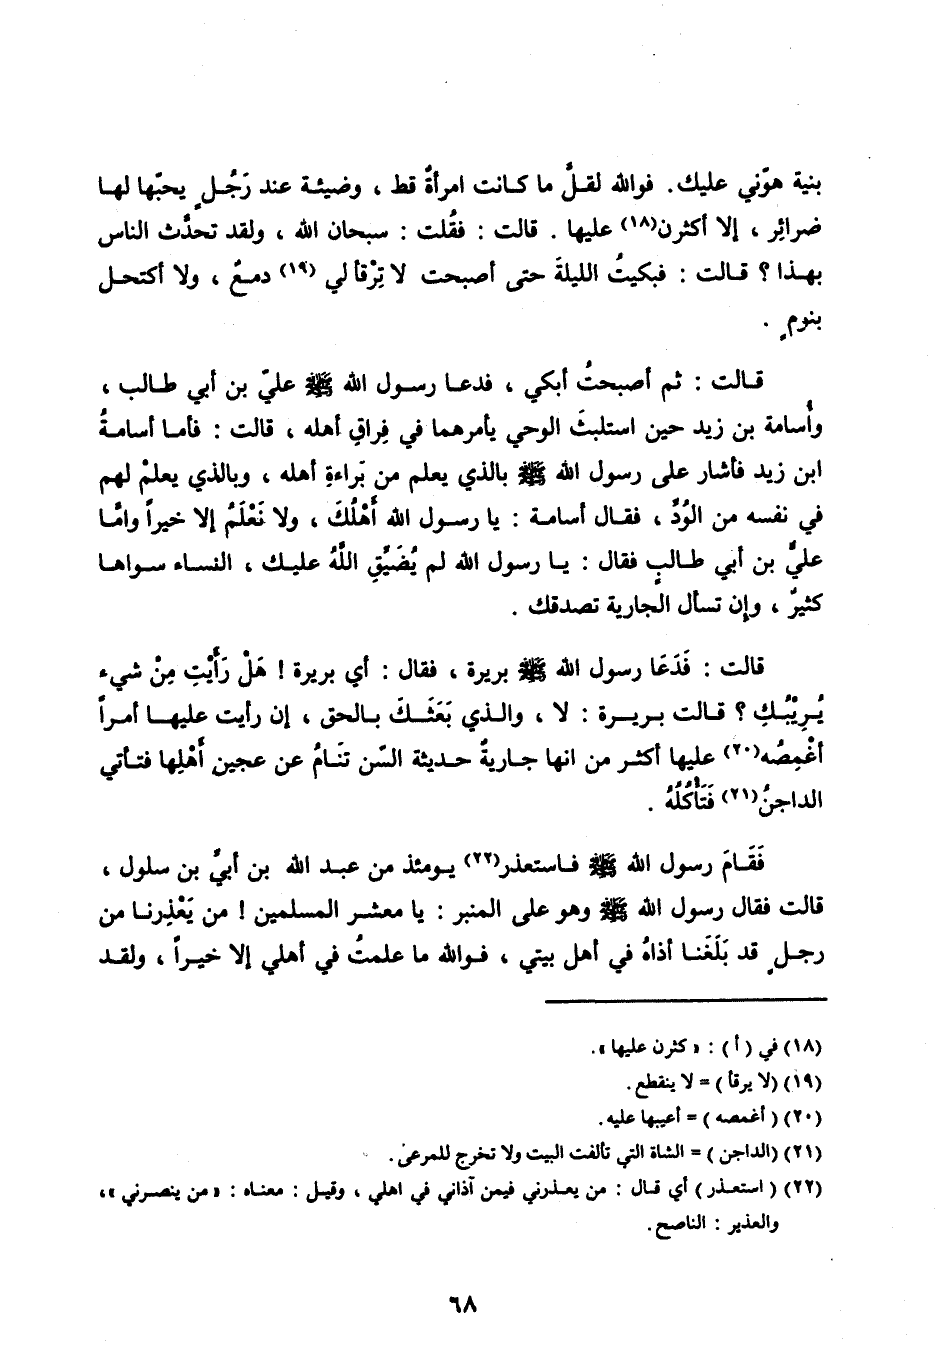 بنية هوّني عليك. فوالله لقلَّ ما كانت امرأةٌ قط ، وضيئة عند رَجُلٍ يحبّها لها
ضرائِر ، إلا أكثرن(١٨) عليها . قالت : فقُلت : سبحان الله ، ولقد تحدَّث الناس
بهذا ؟ قالت : فبكيتُ الليلةَ حتى أصبحت لا تِرْقأ لي (١٩) دمعٌ ، ولا أكتحل
بنومٍ .
قالت : ثم أصبحتُ أبكي ، فدعا رسول الله ﷺ عليّ بن أبي طالب ،
وأُسامة بن زيد حين استلبثَ الوحي يأمرهما في فِراقِ أهله ، قالت : فأما أسامةُ
ابن زيد فأشار على رسول الله ﷺ بالذي يعلم من بَراءةِ أهله ، وبالذي يعلمْ لهم
في نفسه من الوُدِّ ، فقال أسامة : يا رسول الله أَهْلُكَ ، ولا نَعْلَمُ إلا خيراً وامَّا
عليُّ بن أبي طالبٍ فقال : يا رسول الله لم يُضَيِّقِ اللَّهُ عليك ، النساء سواها
كثيرٌ ، وإن تسأل الجارية تصدقك .
قالت : فَدَعَا رسول الله ﷺ بريرة ، فقال : أي بريرة ! هَلْ رَأَيْتِ مِنْ شيء
يُرِيْبُكِ ؟ قالت بريرة : لا ، والذي بَعَثَكَ بالحق ، إن رأيت عليها أمراً
أغْمِصُه(٢٠) عليها أكثر من انها جاريةٌ حديثة السّن تنَامُ عن عجين أَهْلِها فتأتي
الداجنُ(٢١) فَتَأْكُلُهُ .
فَقَامَ رسول الله ﷺ فاستعذر(٢٢) يومئذ من عبد الله بن أبيٍّ بن سلول ،
قالت فقال رسول الله ﷺ وهو على المنبر : يا معشر المسلمين ! من يَعْذِرنا من
رجلٍ قد بَلَغَنا أذاهُ في أهل بيتي ، فوالله ما علمتُ في أهلي إلا خيراً ، ولقد
(١٨) في ( أ ) : « كثرن عليها ».
(١٩) (لا يرقأ ) = لا ينقطع .
(٢٠) ( أغمصه ) = أعيبها عليه .
(٢١) (الداجن ) = الشاة التي تألفت البيت ولا تخرج للمرعىٰ .
(٢٢) ( استعذر ) أي قال : من يعذرني فيمن آذاني في اهلي ، وقيل : معناه : « من ينصرني »،
والعذير : الناصح .
٦٨